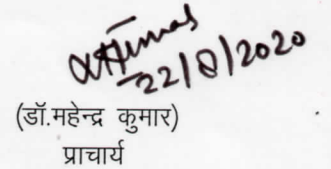 22/8/2020
(डॉ.महेन्द्र कुमार)
प्राचार्य